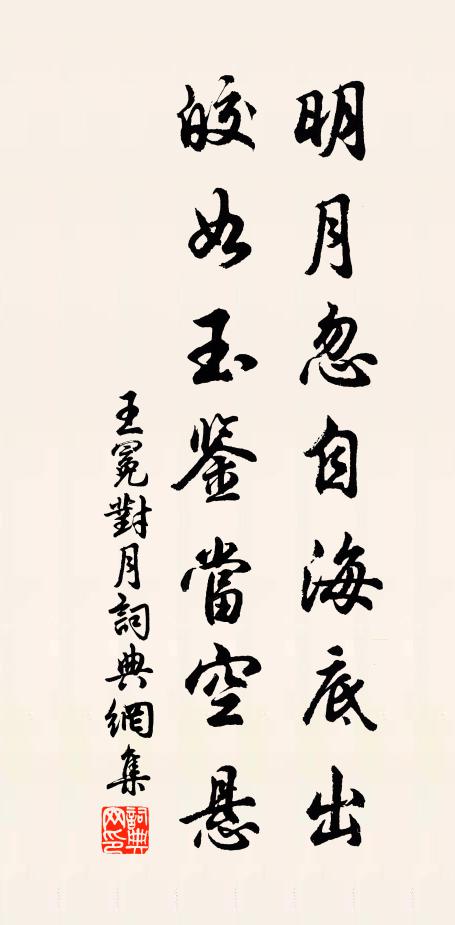 明月忽自海底出
皎如玉鉴當空悬
王冕對月詞典網集
詞典网印